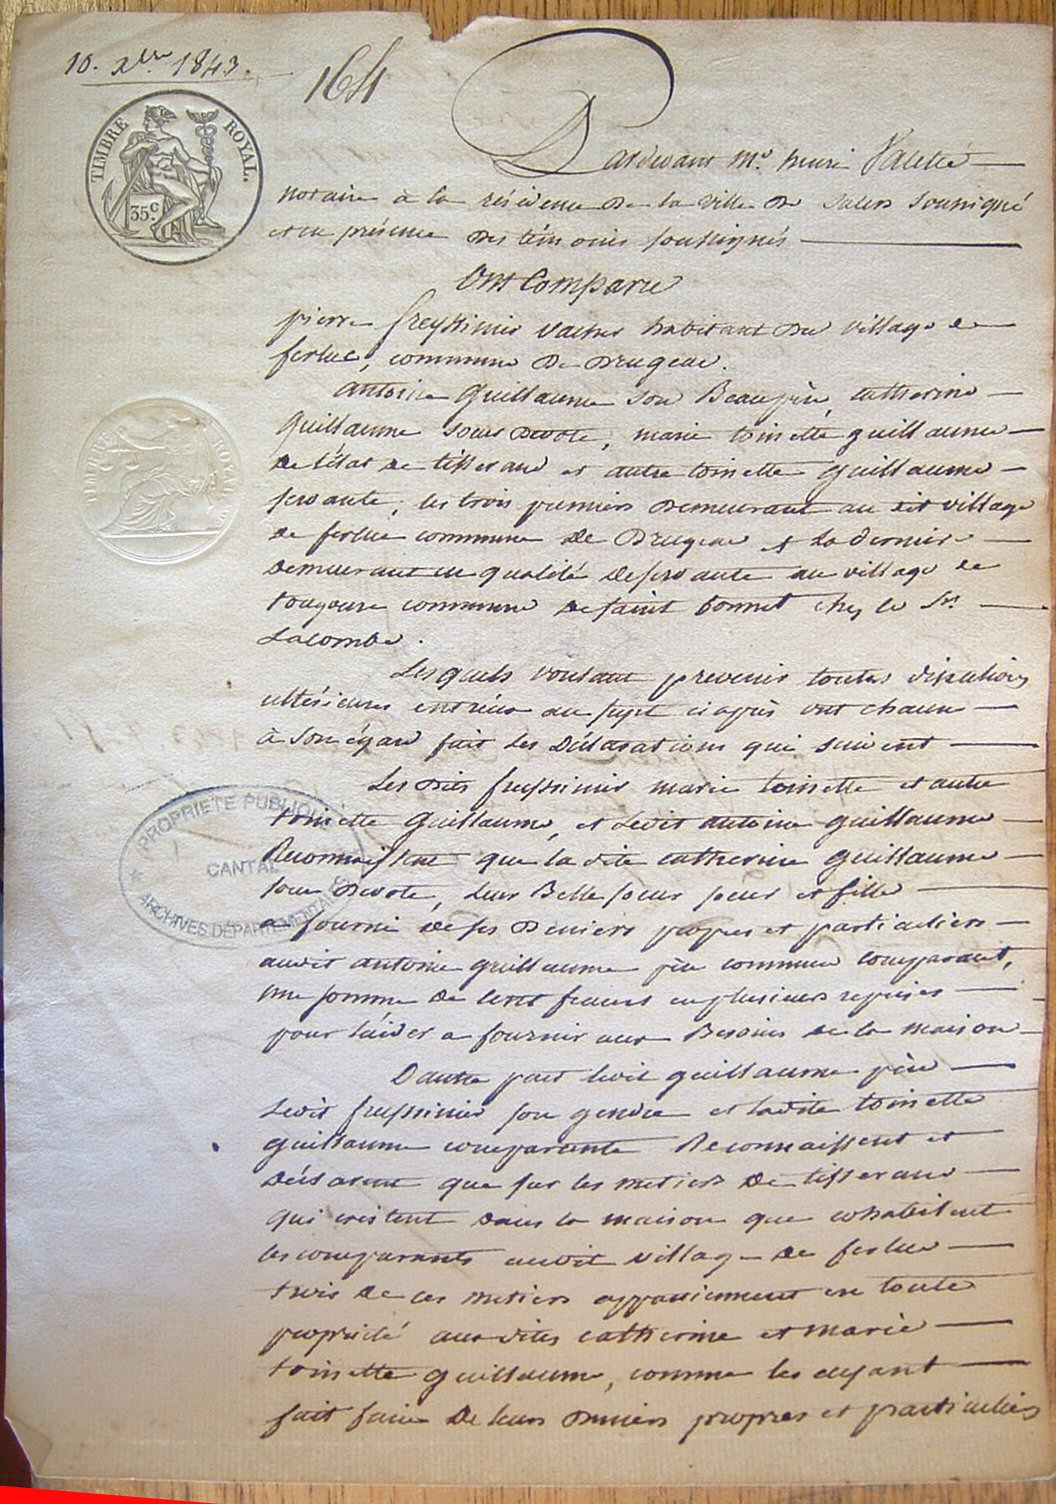 10. Xbre 1843.
164
TIMBRE ROYAL.
35 c.
Pardevant Me. henri Valette
notaire à la résidence de la ville de Salers soussigné
et en présence des témoins soussignés
Ont Comparu
pierre freyssinier vacher habitant du village de
ferluc, commune de Drugeac.
antoine Guillaume son Beaupère, catherine
Guillaume soeur devote, marie toinette guillaume
de l'état de tisserand et autre toinette guillaume
servante, les trois premiers demeurant au dit village
de ferluc commune de Drugeac et la derniere
demeurant en qualité de servante au village de
commune de saint bonnet chez le Sr.
Lacombe.
Lesquels voulant prevenir toutes disputions
ultérieures entréux au sujet ciaprès ont chacun
à son égard fait les Déclarations qui suivent
Les dits freyssinier marie toinette et autre
toinette Guillaume, et ledit antoine guillaume
Reconnaissent que la dite catherine guillaume
soeur Devote, leur Belle soeur soeur et fille
a fourni de ses Deniers propres et particuliers
audit antoine guillaume père commun comparant,
une somme de cent francs en plusieurs reprises
pour láider a fournir aux Besoins de la maison
Dautre part ledit guillaume père
ledit freyssinier son gendre et ladite toinette
guillaume comparante Reconnaissent et
déclarent que sur les metiers de tisserand
qui existent dans la maison que cohabitent
les comparants audit village de ferluc
trois de ces metiers appartiennent en toute
propriété aux dites catherine et marie
toinette guillaume, comme les ayant
fait faire de leurs deniers propres et particuliers
TIMBRE ROYAL
PROPRIETE PUBLIQUE
CANTAL
ARCHIVES DÉPARTEMENTALES